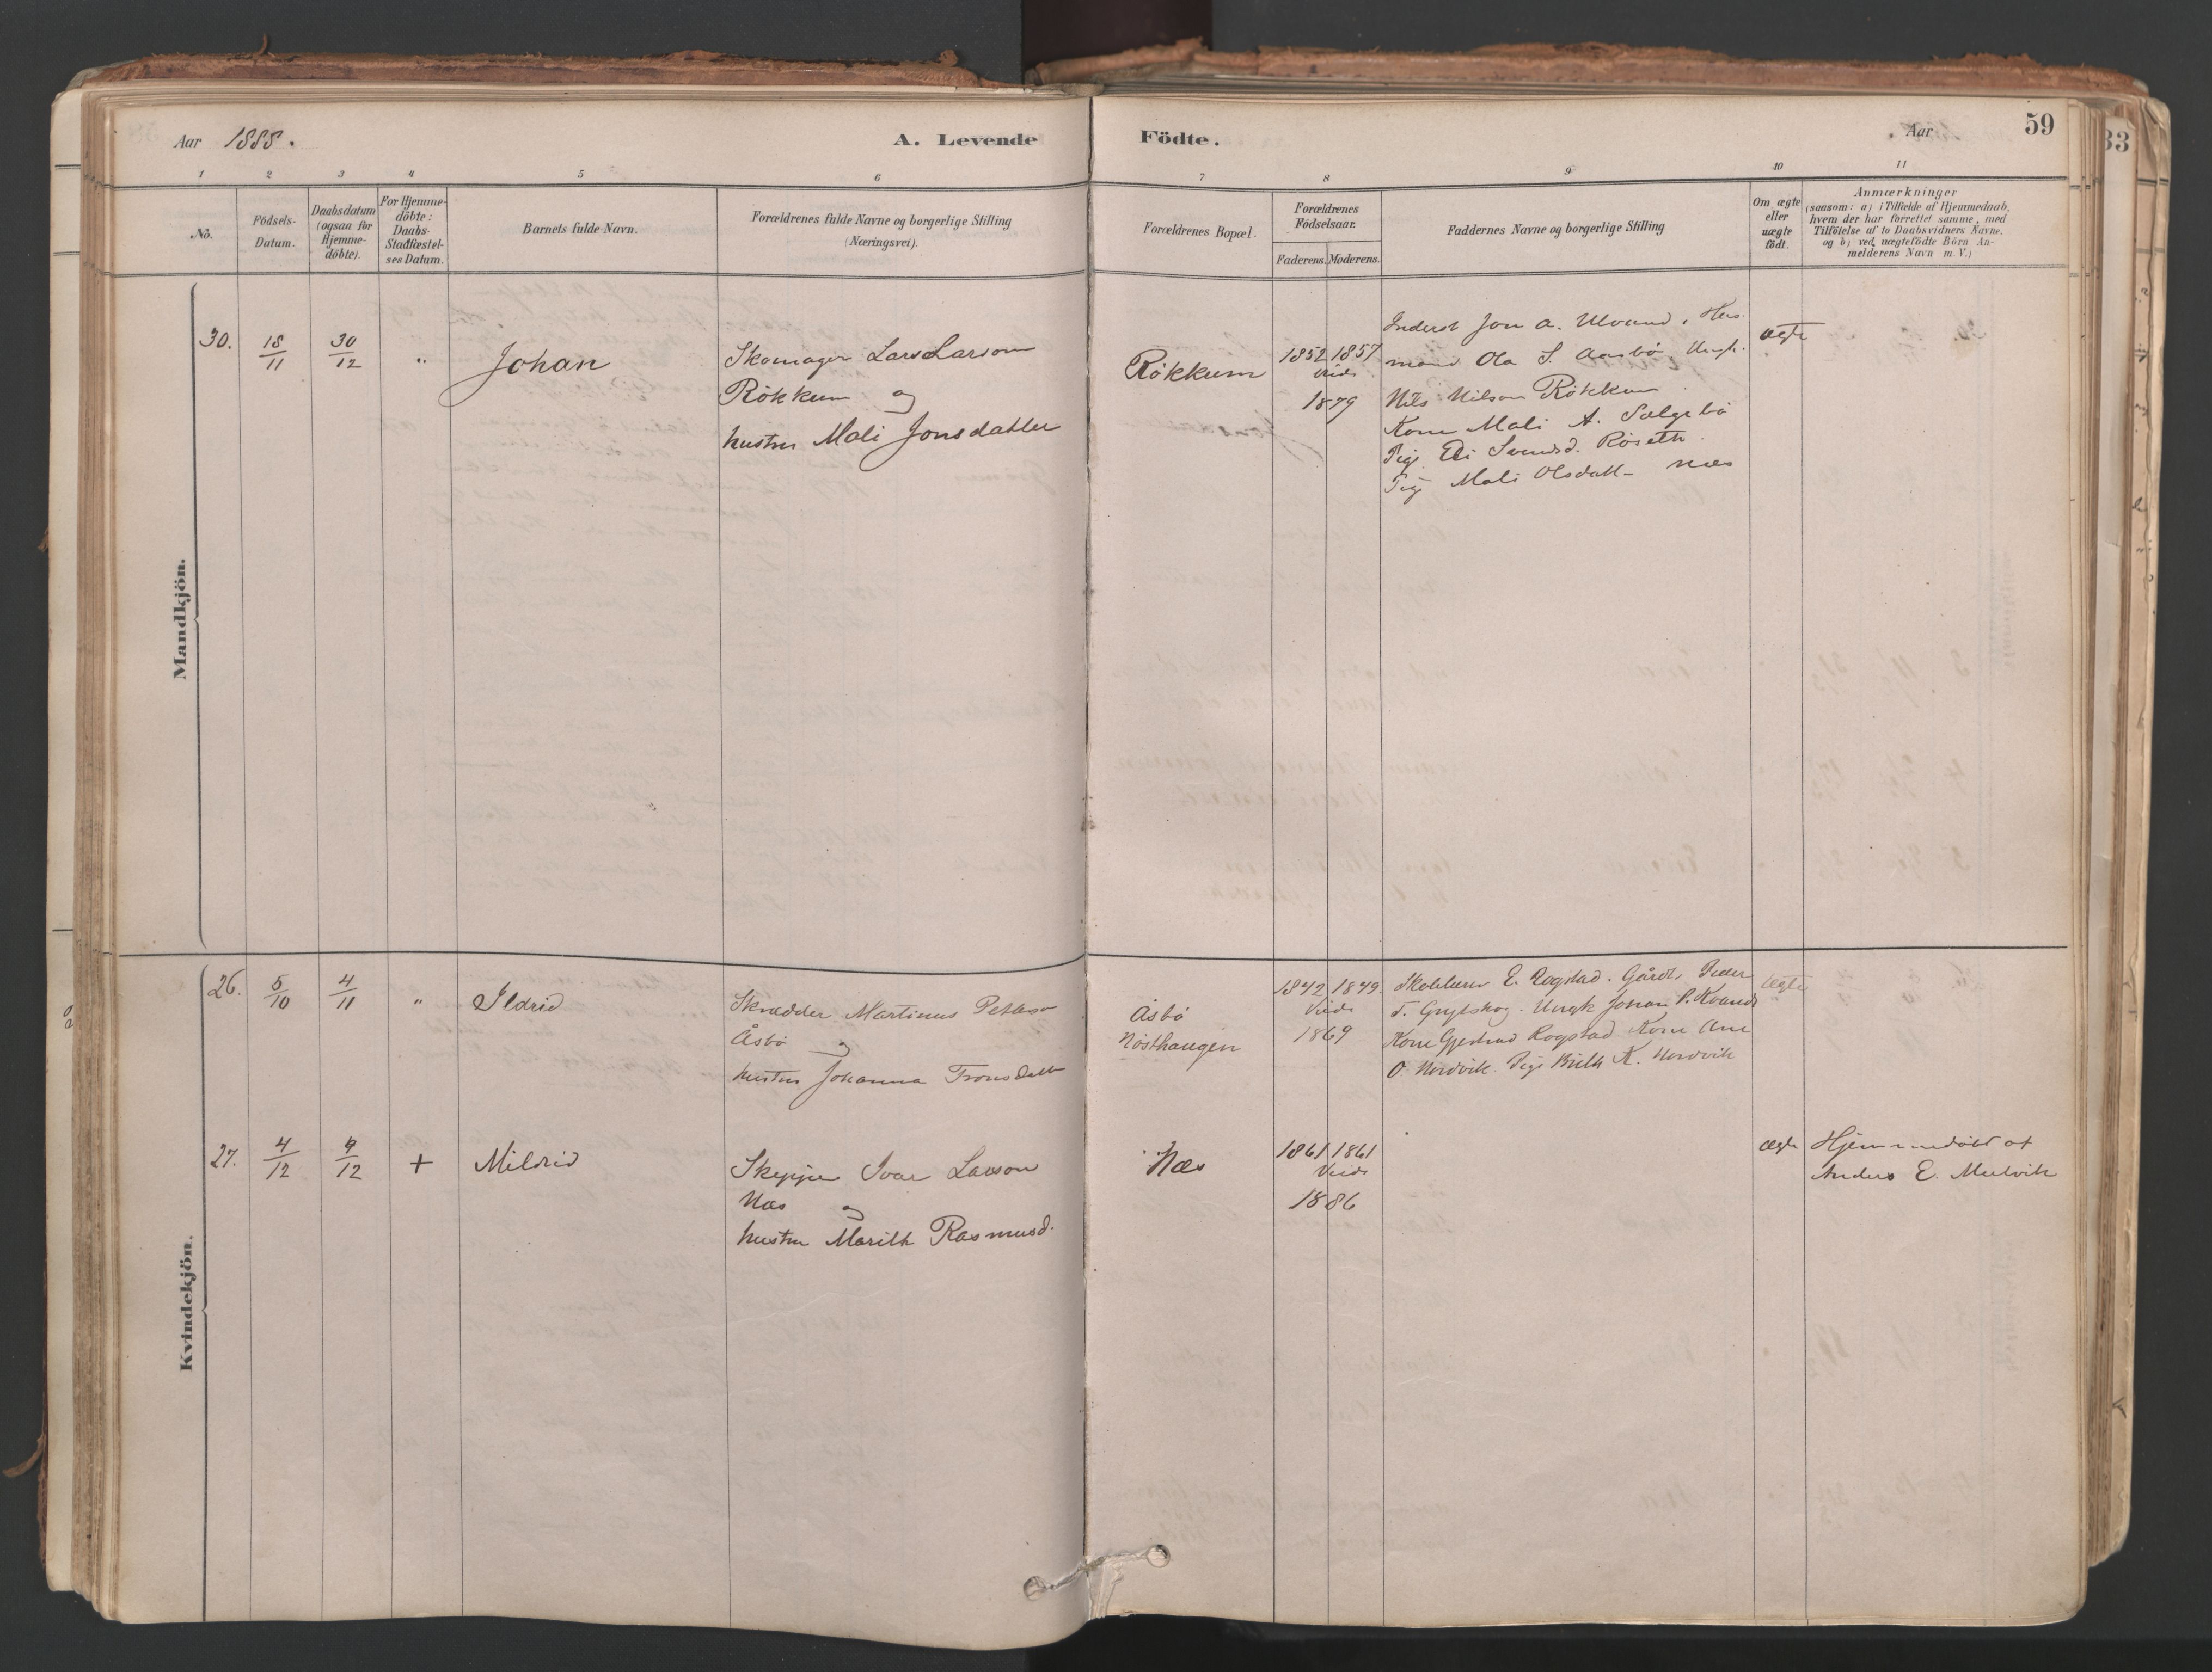 Aar 1888.
A. Levende Födte.
Aar
59
33
1 2 3 4 5 6 7 8 9 10 11
No.
Födsels-
Datum.
Daabsdatum
(ogsaa for
Hjemme-
döbte).
For Hjemme-
döbte:
Daabs-
Stadfæstel-
ses Datum.
Barnets fulde Navn.
Forældrenes fulde Navne og borgerlige Stilling
(Næringsvei).
Forældrenes Bopæl.
Forældrenes
Födselsaar.
Faderens. Moderens.
Faddernes Navne og borgerlige Stilling
Om ægte
eller
uægte
födt.
Anmærkninger
(saasom: a) i Tilfælde af Hjemmedaab,
hvem der har forrettet samme, med
Tilföielse af to Daabsvidners Navne.
og b) ved uægtefödte Börn An-
melderens Navn m. V.)
Mandkjön.
30. 18/11 30/12 " Johan
Skomager Lars Larson
Rökkum og
hustru Mali Jonsdatter
Rökkum
1852 1857
Viede
1879
Inderst Jon A. Ulvund, Hus-
mand Ola S. Aasbö, Ungk.
Nils Nilson Rökkum
Kone Mali A. Sælgebö
Pige Eli Svendsd. Röseth.
Pige Mali Olsdatt- Næs
ægte
Kvindekjön.
26. 5/10 4/11 " Ildrid
Skrædder Martinus Petterson
Åsbö og
hustru Johanna Tronsdatt
Åsbö
Nösthaugen
1842 1849.
Viede
1869
E. Rogstad. Gårdb. Peder
T. Grytskog. Ungk Johan P. Kvande
Kone Gjertrud Rogstad Kone Ane
O. Nordvik. Pige Brith K. Nordvik
ægte
27. 4/12 9/12 + Mildrid
Skipper Ivar Larson
Næs og
hustru Marith Rasmusd.
Næs
1861 1861
Viede
1886
ægte
Hjemmedöbt af
Anders E. Mulvik